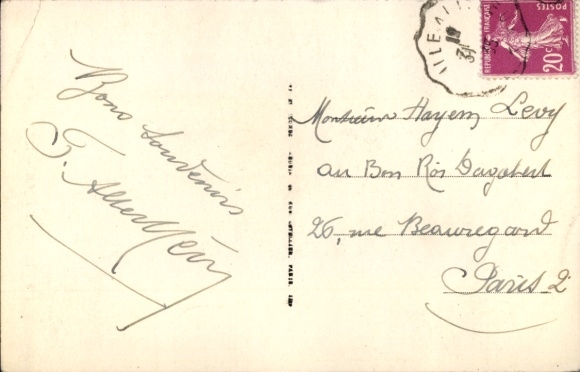 Bons souvenirs
Monsieur Hayem Levy
au Bon Roi Dagobert
26, rue Beauregard
Paris 2
POSTES
REPUBLIQUE FRANÇAISE
20c